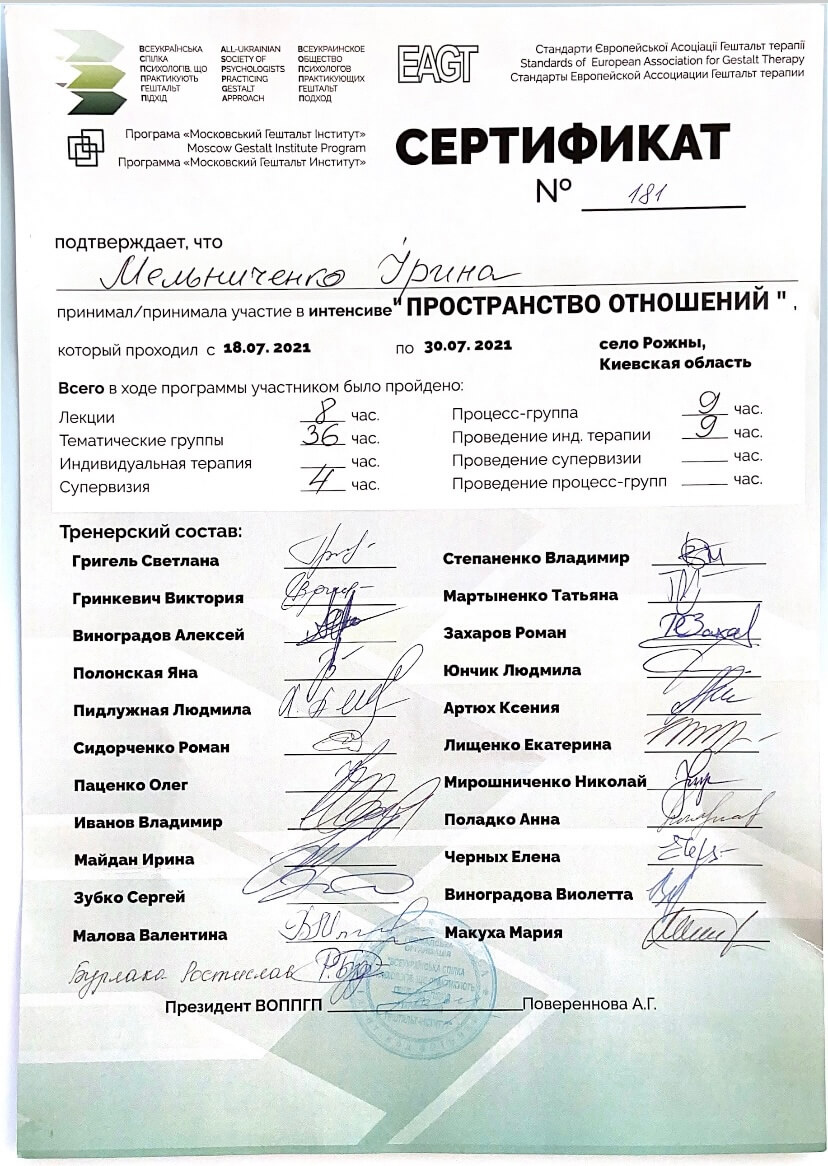 ВСЕУКРАЇНСЬКА
СПІЛКА
ПСИХОЛОГІВ, ЩО
ПРАКТИКУЮТЬ
ГЕШТАЛЬТ
ПІДХІД
ALL-UKRAINIAN
SOCIETY OF
PSYCHOLOGISTS
PRACTICING
GESTALT
APPROACH
ВСЕУКРАИНСКОЕ
ОБЩЕСТВО
ПСИХОЛОГОВ
ПРАКТИКУЮЩИХ
ГЕШТАЛЬТ
ПОДХОД
EAGT
Стандарти Європейської Асоціації Гештальт терапії
Standards of European Association for Gestalt Therapy
Стандарты Европейской Ассоциации Гештальт терапии
Програма «Московський Гештальт Інститут»
Moscow Gestalt Institute Program
Программа «Московский Гештальт Институт»
СЕРТИФИКАТ
№ 181
подтверждает, что
Мельниченко Ірина
принимал/принимала участие в интенсиве "ПРОСТРАНСТВО ОТНОШЕНИЙ ",
который проходил с 18.07. 2021 по 30.07. 2021 село Рожны,
Киевская область
Всего в ходе программы участником было пройдено:
Лекции 8 час. Процесс-группа 9 час.
Тематические группы 36 час. Проведение инд. терапии 9 час.
Индивидуальная терапия ___ час. Проведение супервизии ___ час.
Супервизия 4 час. Проведение процесс-групп ___ час.
Тренерский состав:
Григель Светлана Степаненко Владимир
Гринкевич Виктория Мартыненко Татьяна
Виноградов Алексей Захаров Роман
Полонская Яна Юнчик Людмила
Пидлужная Людмила Артюх Ксения
Сидорченко Роман Лищенко Екатерина
Паценко Олег Мирошниченко Николай
Иванов Владимир Поладко Анна
Майдан Ирина Черных Елена
Зубко Сергей Виноградова Виолетта
Малова Валентина Макуха Мария
Бурлака Ростислав
Президент ВОППГП Повереннова А.Г.